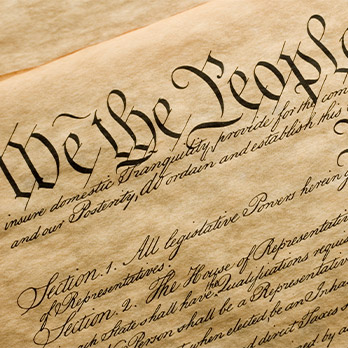 We the People
insure domestic Tranquility, provide for the com
and our Posterity, do ordain and establish this
Section. 1. All legislative Powers herein g
of Representatives.
Section. 2. The House of Representat
each State shall have the Qualifications requis
Person shall be a Representat
when elected, be an Inhab
direct Taxes s